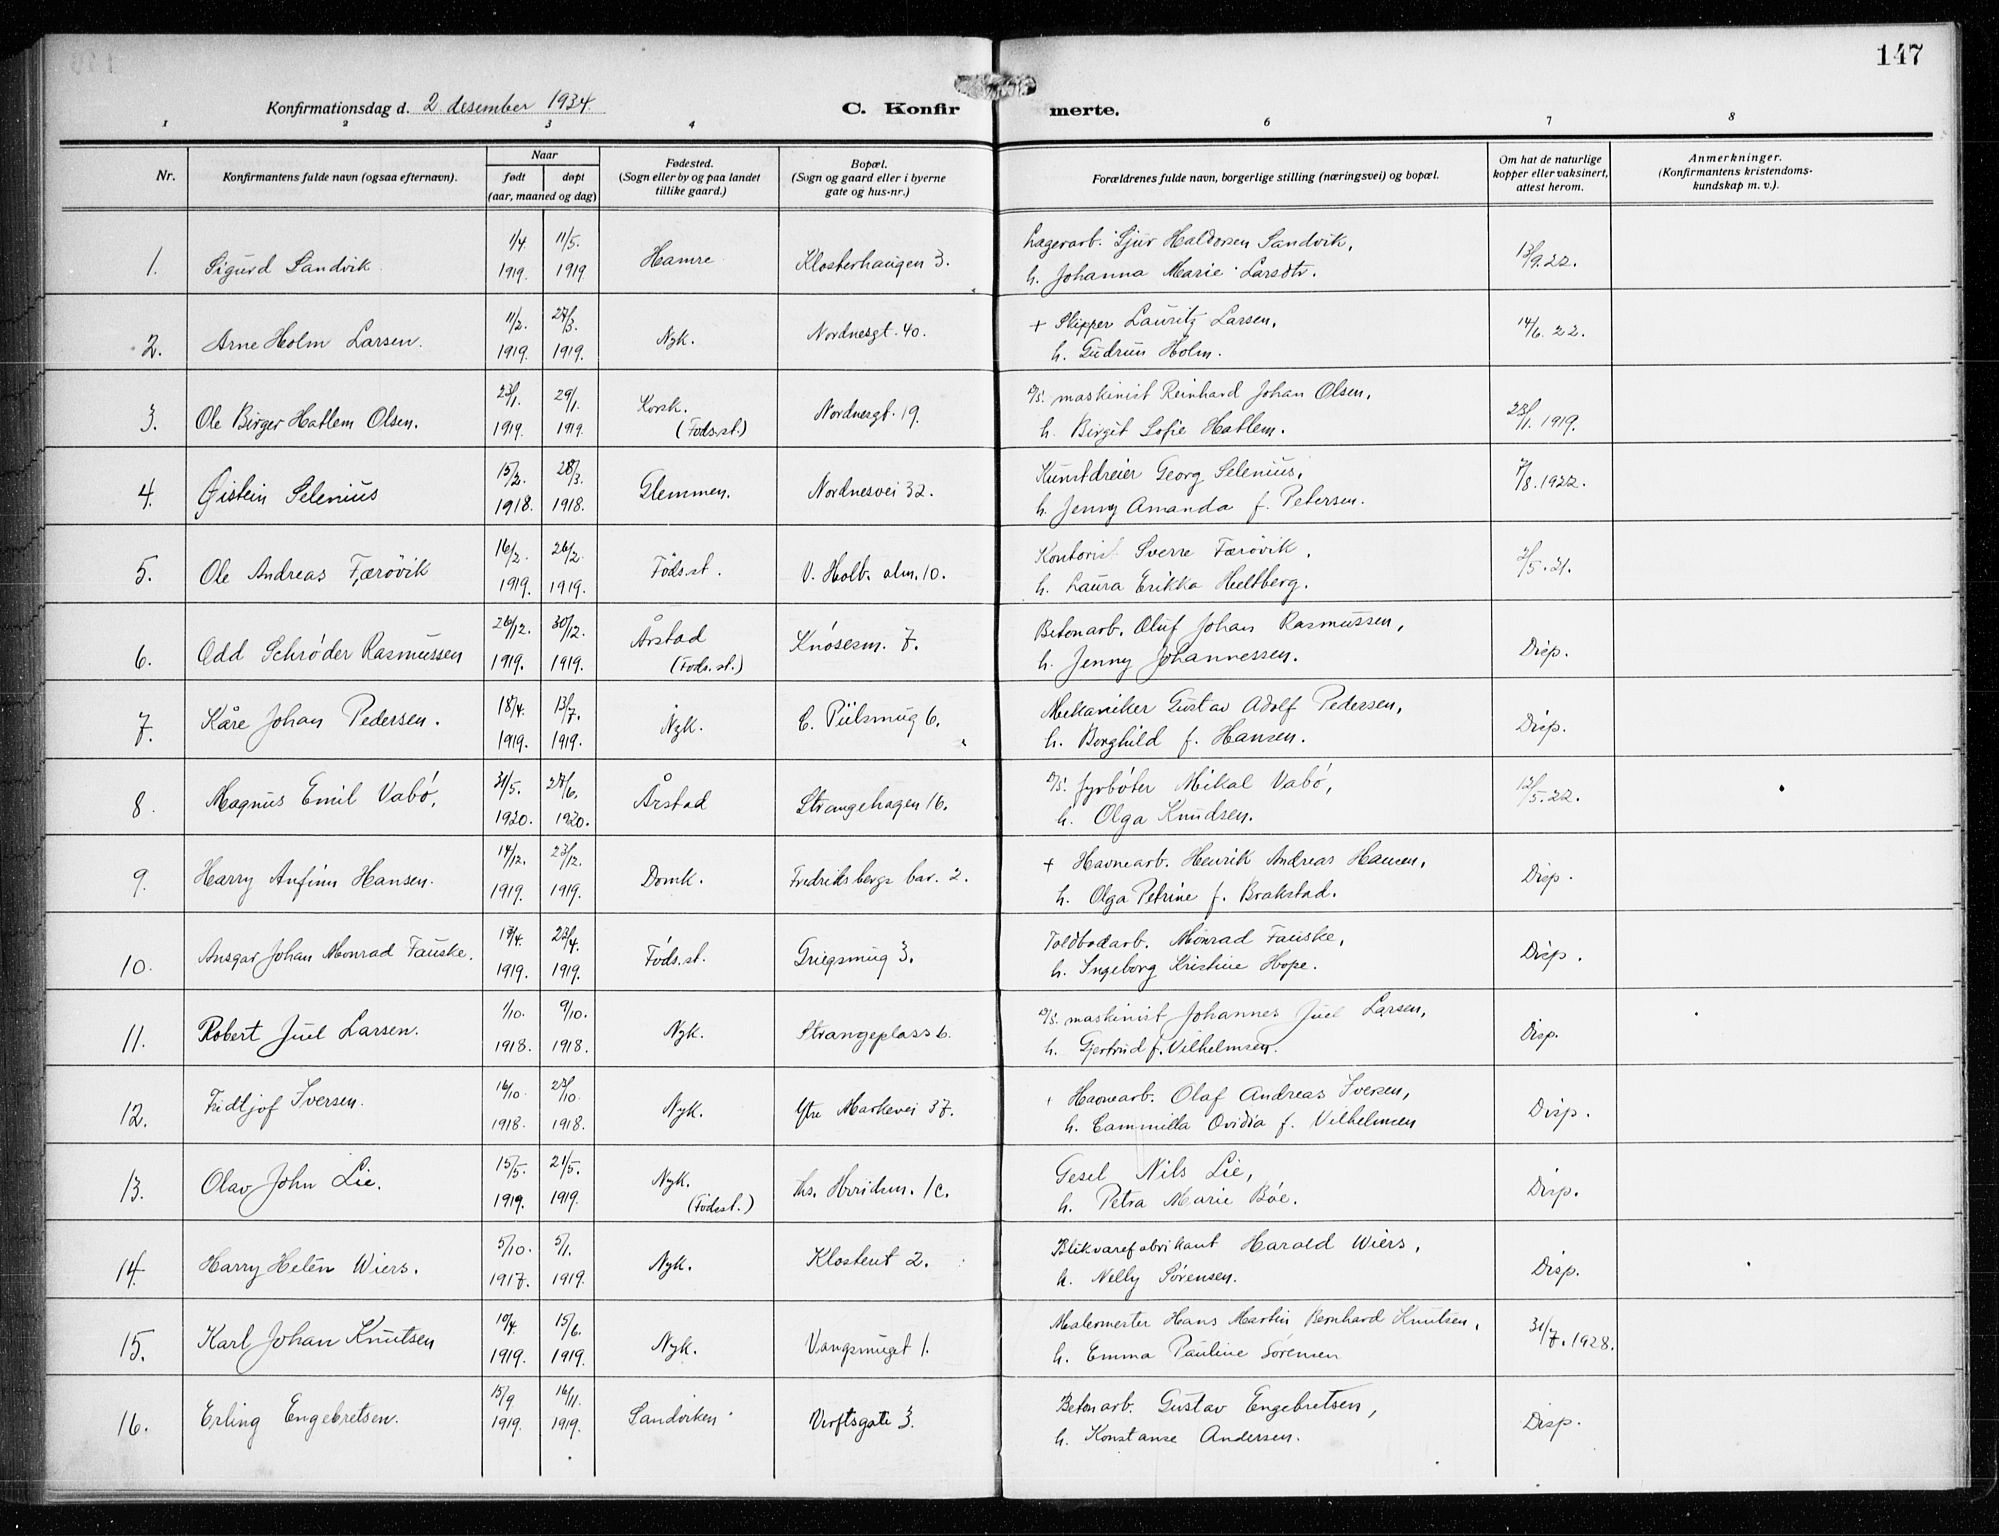 147
Konfirmationsdag d. 2 desember 1934.
C. Konfirmerte.
1 2 3 4 6 7 8
Nr. | Konfirmantens fulde navn (ogsaa efternavn). | Naar født døpt (aar, maaned og dag) | Fødested. (Sogn eller by og paa landet tillike gaard.) | Bopæl. (Sogn og gaard eller i byerne gate og hus-nr.) | Forældrenes fulde navn, borgerlige stilling (næringsvei) og bopæl. | Om hat de naturlige kopper eller vaksinert, attest herom. | Anmerkninger. (Konfirmantens kristendoms-kundskap m. v.).
1. Sigurd Sandvik. 1/4. 1919. 11/5. 1919 Hamre Klosterhaugen 3. Lagerarb. Sjur Haldorsen Sandvik, 13/9.22.
h. Johanna Marie Larsdtr.
2. Arne Holm Larsen. 11/2. 1919. 27/3. 1919. Nyk. Nordnesgt. 40. + Skipper Lauritz Larsen, 14/6. 22.
h. Gudrun Holm.
3. Ole Birger Hatlem Olsen. 23/1. 1919. 29/1. 1919. Korsk. (Føds.st.) Nordnesgt. 19. D/S. maskinist Reinhard Johan Olsen, 28/1. 1919.
h. Birgit Sofie Hatlem.
4. Øistein Selenius 15/2. 1918. 28/3. 1918. Glemmen. Nordnesvei 32. Kunstdreier Georg Selenius, 7/8. 1922.
h. Jenny Amanda f. Petersen.
5. Ole Andreas Færøvik 16/2. 1919. 26/2. 1919. Føds.st. V. Holb. alm. 10. Kontorist Sverre Færøvik, 2/5. 21.
h. Laura Erikka Hultberg.
6. Odd Schrøder Rasmussen 26/12. 1919. 30/12. 1919. Årstad (Føds.st.) Knøsesm. 7. Betonarb. Oluf Johan Rasmussen, Disp.
h. Jenny Johannessen.
7. Kåre Johan Pedersen. 18/4. 1919. 13/7. 1919. Nyk. C. Piilsmug 6. Mekaniker Gustav Adolf Pedersen, Disp.
h. Borghild f. Hansen.
8. Magnus Emil Vabø, 31/5. 1920. 27/6. 1920. Årstad Strangehagen 16. D/S. fyrbøter Mikal Vabø, 12/5. 22.
h. Olga Knudsen.
9. Harry Anfinn Hansen. 14/12. 1919. 23/12. 1919. Domk. Fredriksbergs bar. 2. + Havnearb. Henrik Andreas Hansen, Disp.
h. Olga Petrine f. Brakstad.
10. Ansgar Johan Monrad Fauske. 18/4. 1919. 23/4. 1919. Føds.st. Griegsmug 3. Toldbodarb. Monrad Fauske, Disp.
h. Ingeborg Kristine Hope.
11. Robert Juel Larsen. 1/10. 1918. 9/10. 1918. Nyk. Strangeplass 6. D/S. maskinist Johannes Juel Larsen, Disp.
h. Gjertrud f. Vilhelmsen.
12. Fridtjof Iversen. 16/10. 1918. 23/10. 1918. Nyk. Ytre Markevei 37. + Havnearb. Olaf Andreas Iversen, Disp.
h. Cammilla Ovidia f. Vilhelmsen
13. Olav John Lie. 15/5. 1919. 21/5. 1919. Nyk. (Fødsst.) 1c. Gesel Nils Lie, Disp.
h. Petra Marie Bøe.
14. Harry Helén Wiers. 5/10. 1917. 5/1. 1919. Nyk. Klostert 2. Blikvarefabrikant Harald Wiers, Disp.
h. Nelly Sørensen.
15. Karl Johan Knutsen 10/4. 1919. 15/6. 1919. Nyk. Vangsmuget 1. Malermester Hans Martin Bernhard Knutsen, 31/7. 1928.
h. Emma Pauline Sørensen
16. Erling Engebretsen. 15/9 1919. 16/11. 1919. Sandviken Verftsgate 3. Betonarb. Gustav Engebretsen, Disp.
h. Konstanse Andersen.